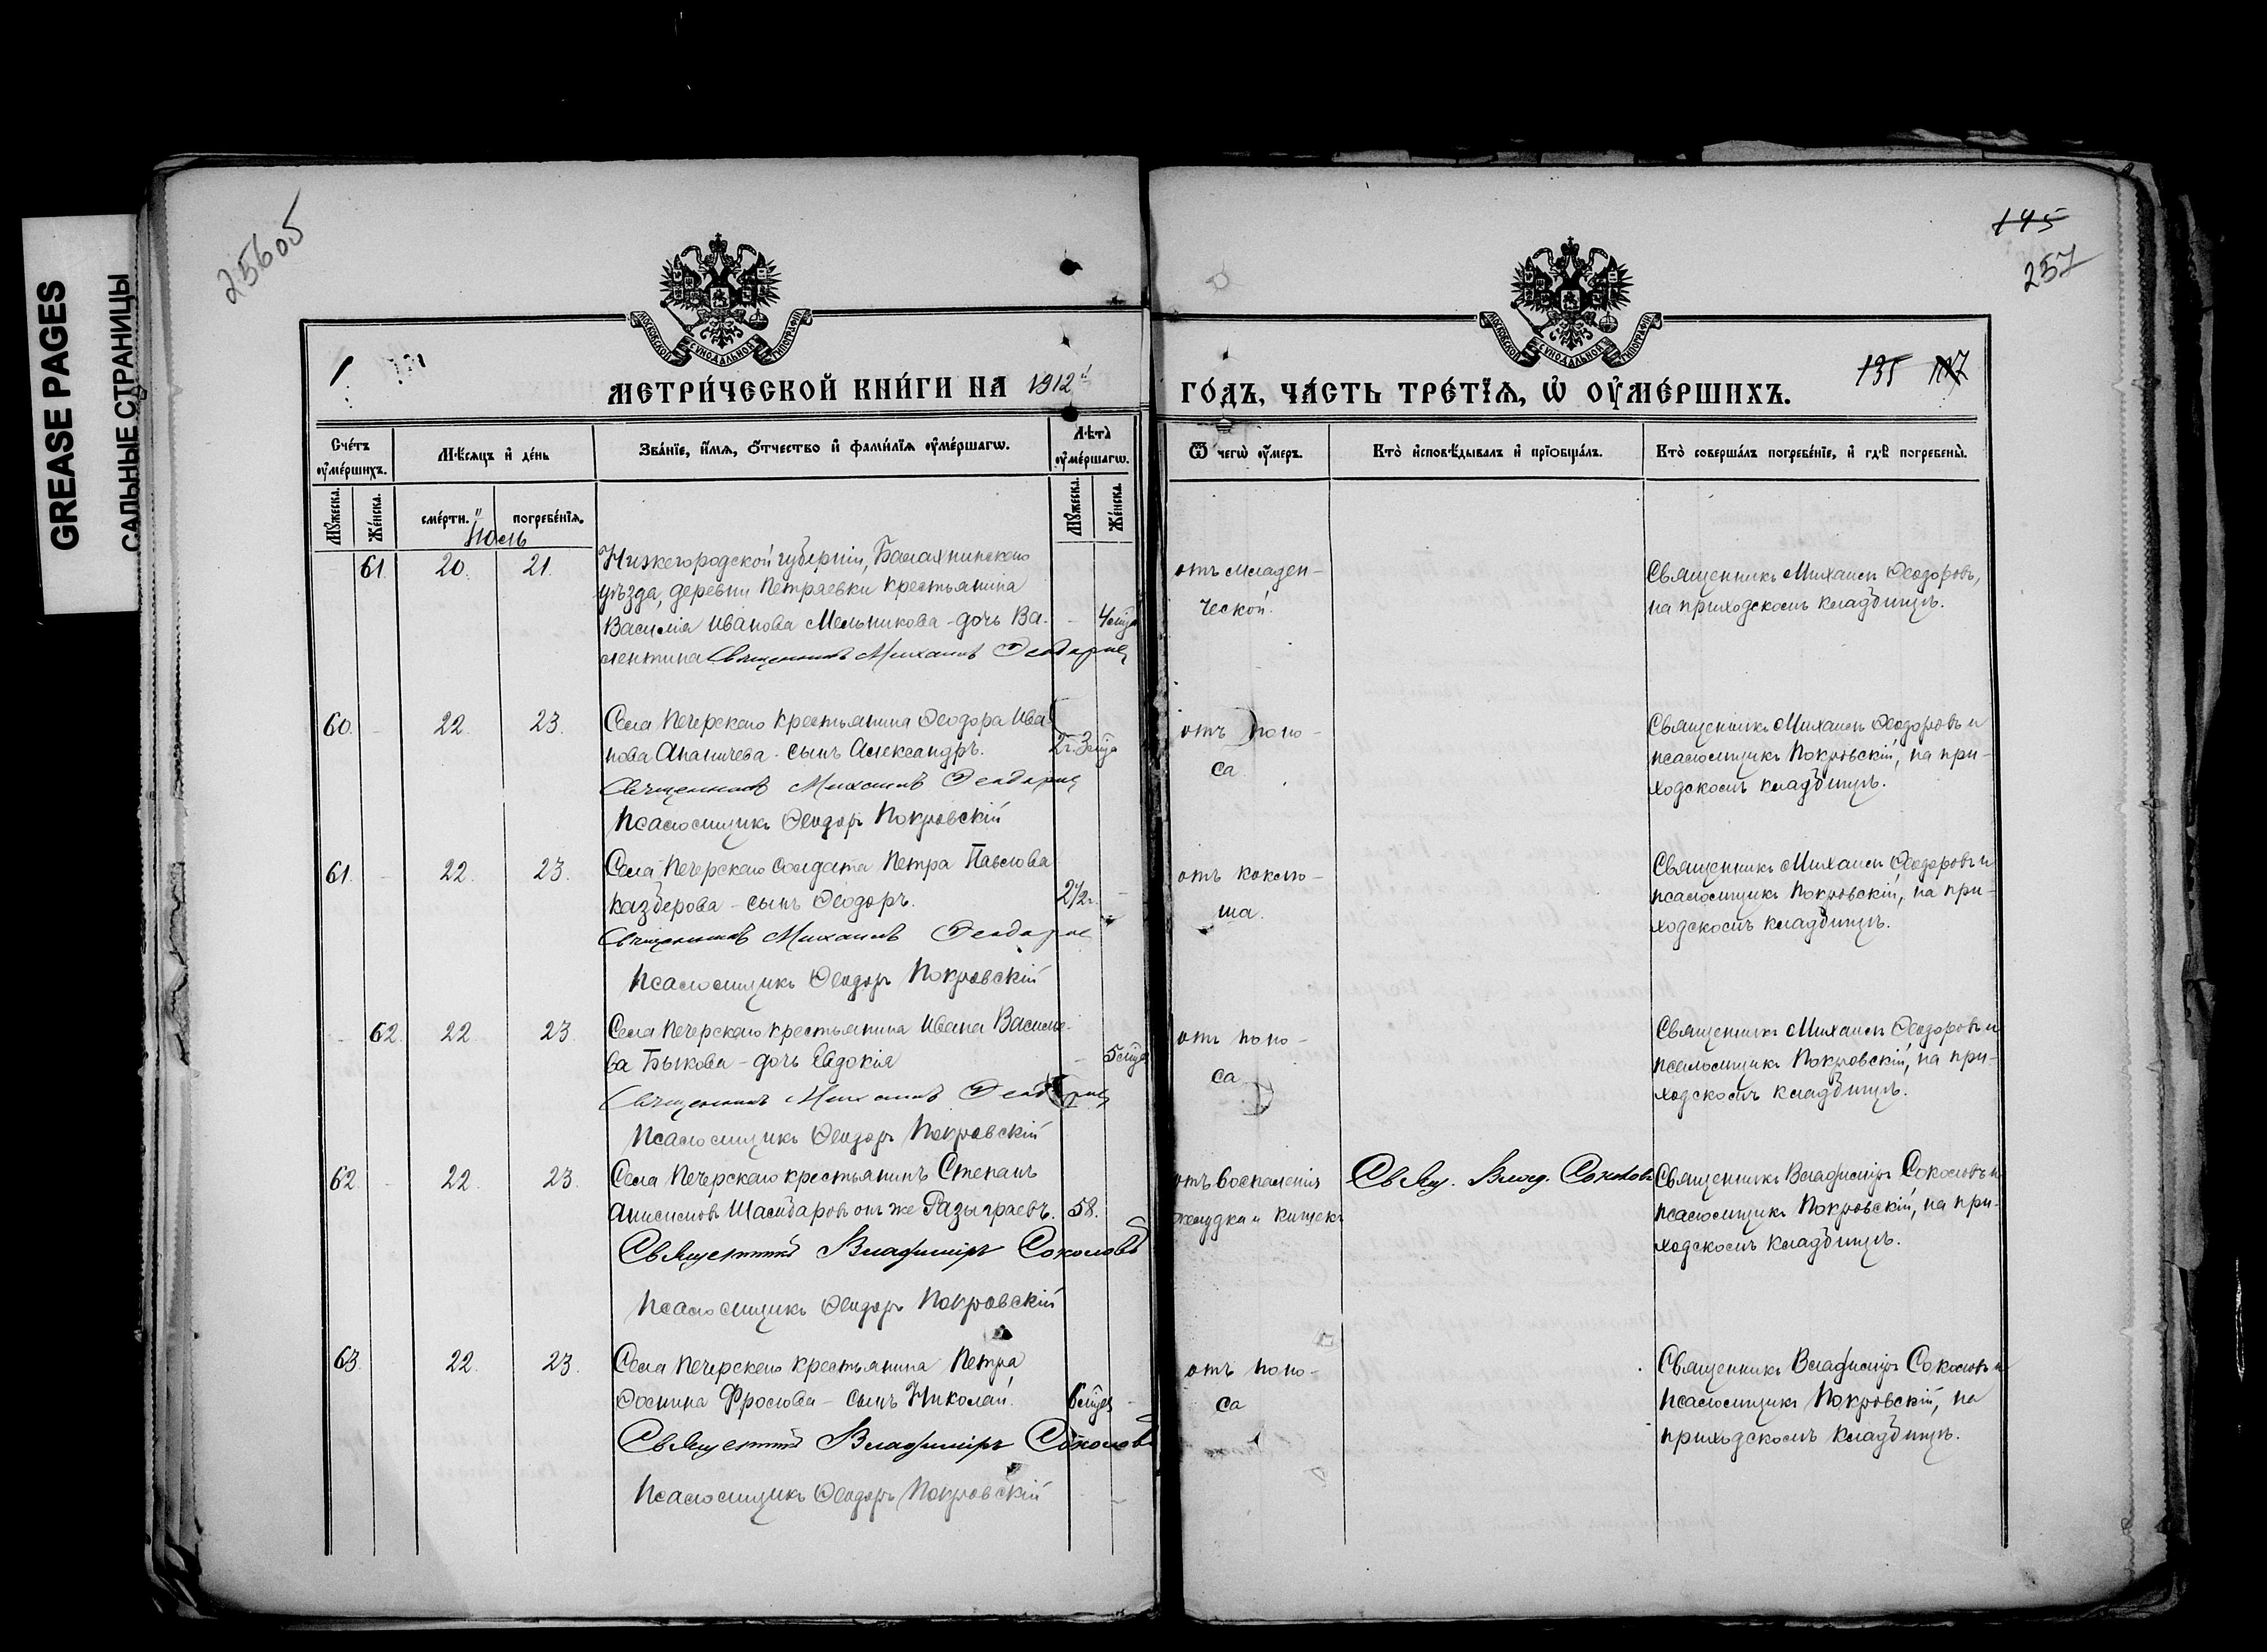 GREASE PAGES
САЛЬНЫЕ СТРАНИЦЫ
25605
145
257
МОСКОВСКОЙ СѴНОДАЛЬНОЙ ТИПОГРАФІИ
МОСКОВСКОЙ СѴНОДАЛЬНОЙ ТИПОГРАФІИ
135
МЕТРИ́ЧЕСКОЙ КНИ́ГИ НА 1912
ГО́ДЪ, ЧА́СТЬ ТРЕ́ТЇѦ, Ѡ ОУ҆МЕ́РШИХЪ.
Сче́тъ оу҆ме́ршихъ.
Мѣ́сяцъ и҆ де́нь
Зва́нїе, и҆́мѧ, ѻ҆́тчество и҆ фами́лїѧ оу҆ме́ршагѡ.
Лѣ́та оу҆ме́ршагѡ.
Ѿ чегѡ̀ оу҆́меръ.
Кто̀ и҆сповѣ́дывалъ и҆ прїѻбща́лъ.
Кто̀ соверша́лъ погребе́нїе, и҆ гдѣ̀ погребены̀.
Мꙋ́жеска.
Же́нска.
сме́рти.
погребе́нїѧ.
Мꙋ́жеска.
Же́нска.
Іюль
61 20. 21. Нижегородской губерніи, Балахнинскаго
уѣзда, деревни Петряевки крестьянина
Василія Иванова Мельникова - дочь Ва-
лентина Священникъ Михаилъ Ѳеодоровъ
4 мѣся
отъ младен-
ческой.
Священникъ Михаилъ Ѳеодоровъ,
на приходскомъ кладбищѣ.
60. - 22. 23. Села Печерскаго крестьянина Ѳеодора Ива-
нова Ананичева - сынъ Александръ. 2 г. 3 мѣся
Священникъ Михаилъ Ѳеодоровъ
Псаломщикъ Ѳеодоръ Покровскій
отъ поно-
са.
Священникъ Михаилъ Ѳеодоровъ и
псаломщикъ Покровскій, на при-
ходскомъ кладбищѣ.
61. - 22. 23. Села Печерскаго солдата Петра Павлова
Казберова - сынъ Ѳеодоръ. 2 1/2 г. -
Священникъ Михаилъ Ѳеодоровъ
Псаломщикъ Ѳеодоръ Покровскій
отъ коклю-
ша.
Священникъ Михаилъ Ѳеодоровъ и
псаломщикъ Покровскій, на при-
ходскомъ кладбищѣ.
- 62. 22. 23. Села Печерскаго крестьянина Ивана Василье-
ва Быкова - дочь Евдокія - 5 мѣся
Священникъ Михаилъ Ѳеодоровъ
Псаломщикъ Ѳеодоръ Покровскій
отъ поно-
са
Священникъ Михаилъ Ѳеодоровъ и
псаломщикъ Покровскій, на при-
ходскомъ кладбищѣ.
62. - 22. 23. Села Печерскаго крестьянинъ Степанъ
Анисимовъ онъ же Разыграевъ. 58.
Священникъ Владиміръ Соколовъ
Псаломщикъ Ѳеодоръ Покровскій
отъ воспаленія
желудка и кишекъ
Свящ. Влад. Соколовъ
Священникъ Владиміръ Соколовъ и
псаломщикъ Покровскій, на при-
ходскомъ кладбищѣ.
63. 22. 23. Села Печерскаго крестьянина Петра
Фролова - сынъ Николай. 6 мѣся -
Священникъ Владиміръ Соколовъ
Псаломщикъ Ѳеодоръ Покровскій
отъ поно-
са
Священникъ Владиміръ Соколовъ и
псаломщикъ Покровскій, на
приходскомъ кладбищѣ.